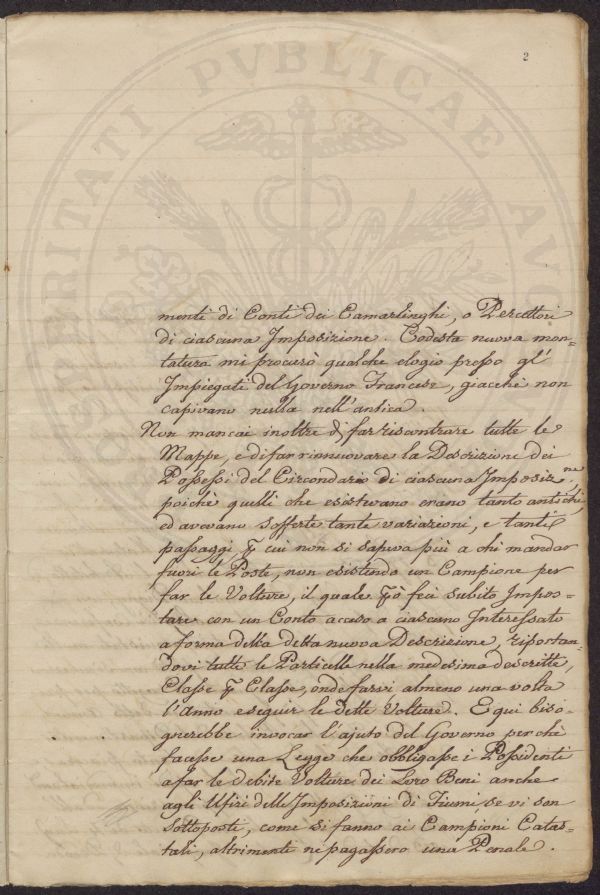 2
VBERTATI PVBLICAE
menti di Conti dei Camarlinghi, o Percettori
di ciascuna Imposizione. Codesta nuova mon=
tatura mi procurò qualche elogio presso gl'
Impiegati del Governo Francese, giacchè non
capivano nulla nell'antica.
Non mancai inoltre di far riscontrare tutte le
Mappe, e di far rinnuovare la Descrizione dei
Possessi del Circondario di ciascuna Imposiz.ne,
poichè quelli che esistevano erano tanto antichi,
ed avevano sofferte tante variazioni, e tanti
passaggi p cui non si sapeva più a chi mandar
fuori le Poste, non esistendo un Campione per
far le Volture, il quale però feci subito Impos=
tare con un Conto acceso a ciascuno Interessato
a forma della detta nuova Descrizione, riportan=
dovi tutte le Particelle nella medesima descritte,
Classe p Classe, onde farvi almeno una volta
l'Anno eseguir le dette Volture. E qui biso=
gnerebbe invocar l'ajuto del Governo perchè
facesse una Legge che obbligasse i Possidenti
a far le debite Volture dei Loro Beni anche
agli Ufizi delle Imposizioni di Fiumi se vi son
sottoposti, come si fanno ai Campioni Catas=
tali, altrimenti ne pagassero una Penale.